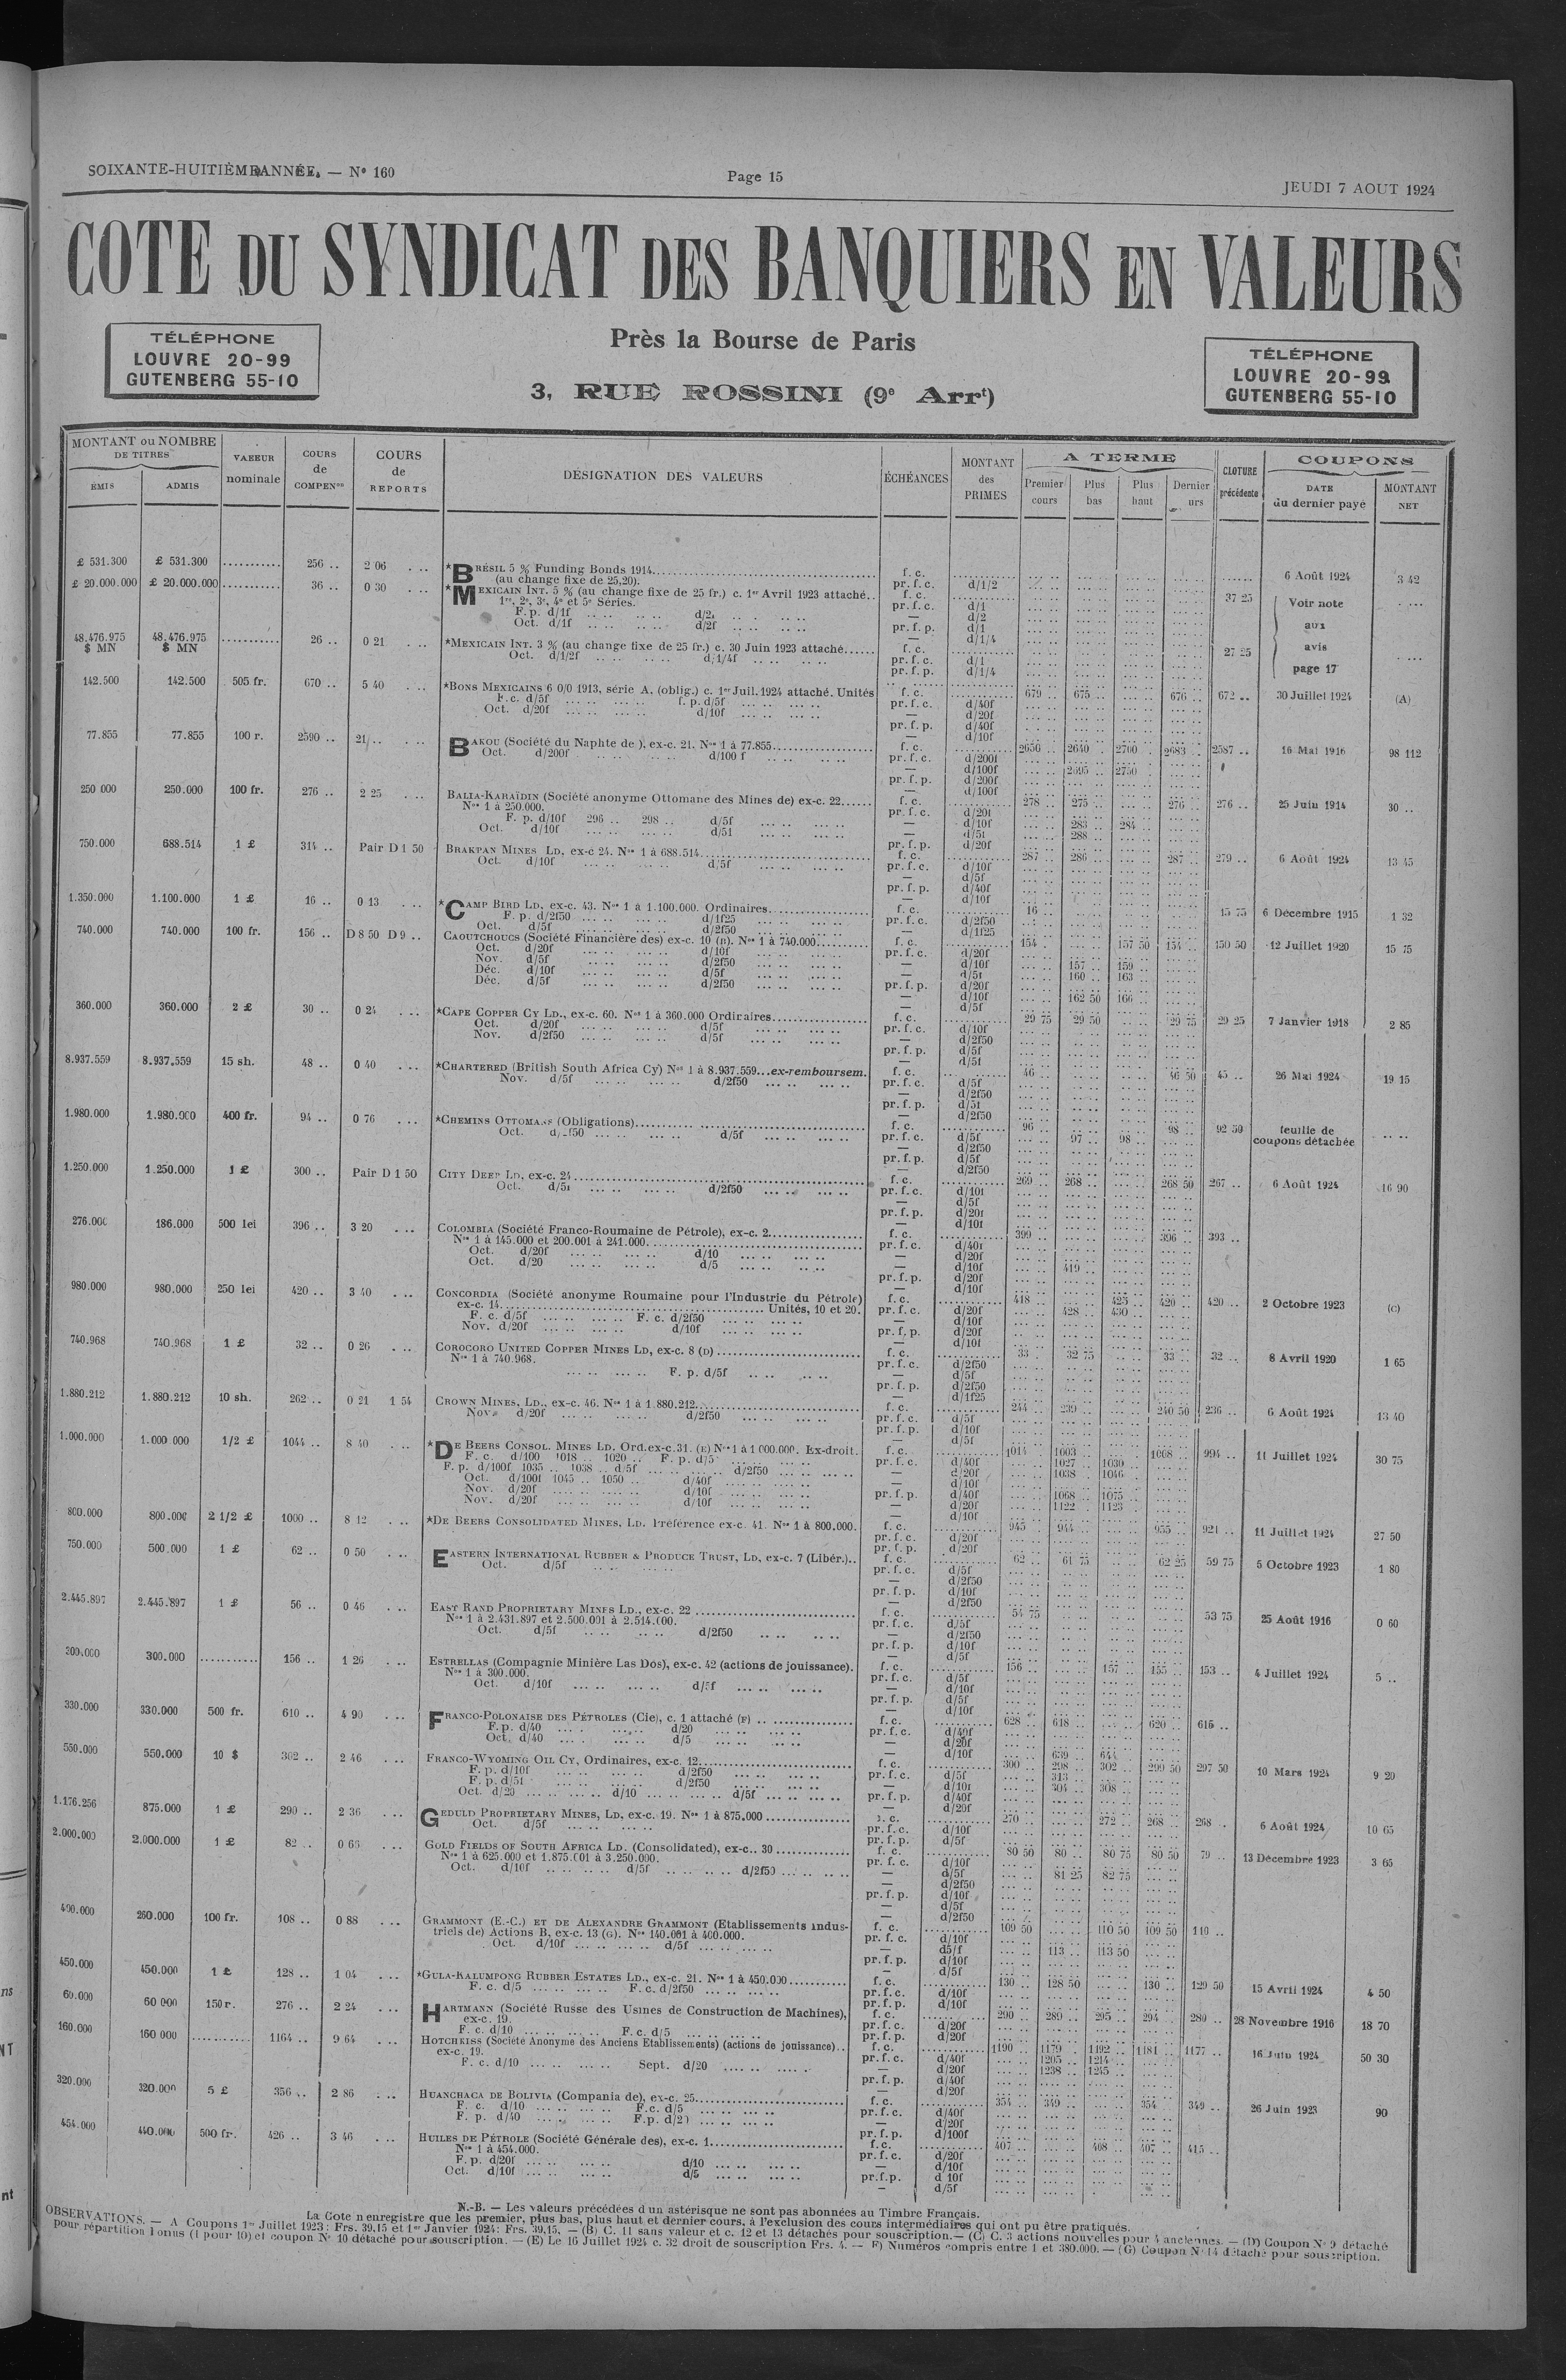 SOIXANTE-HUITIÈME ANNÉE. — N° 160
Page 15
JEUDI 7 AOUT 1924
COTE DU SYNDICAT DES BANQUIERS EN VALEURS
Près la Bourse de Paris
3, RUE ROSSINI (9e Arrt)
TÉLÉPHONE
LOUVRE 20-99
GUTENBERG 55-10
TÉLÉPHONE
LOUVRE 20-99
GUTENBERG 55-10
MONTANT ou NOMBRE DE TITRES
ÉMIS
ADMIS
VALEUR nominale
COURS de COMPENon
COURS de REPORTS
DÉSIGNATION DES VALEURS
ÉCHÉANCES
MONTANT des PRIMES
A TERME
Premier cours
Plus bas
Plus haut
Dernier
CLOTURE précédente
COUPONS
DATE du dernier payé
MONTANT NET
£ 531.300 £ 531.300 ........... 256 .. 2 06 *BRÉSIL 5 % Funding Bonds 1914 f. c. 6 Août 1924 3 42
(au change fixe de 25,20). pr. f. c. d/1/2
£ 20.000.000 £ 20.000.000 ........... 36 .. 0 30 *MEXICAIN INT. 5 % (au change fixe de 25 fr.) c. 1er Avril 1923 attaché.. f. c. 37 25 Voir note aux avis page 17
1re, 2e, 3e, 4e et 5e Séries. pr. f. c. d/1
F. p. d/1f d/2 — d/2
Oct. d/1f d/2f pr. f. p. d/1
— d/1/4
48.476.975 $ MN 48.476.975 $ MN ........... 26 .. 0 21 *MEXICAIN INT. 3 % (au change fixe de 25 fr.) c. 30 Juin 1923 attaché f. c. 27 25
Oct. d/1/2f d/1/4f pr. f. c. d/1
pr. f. p. d/1/4
142.500 142.500 505 fr. 670 .. 5 40 *BONS MEXICAINS 6 0/0 1913, série A, (oblig.) c. 1er Juil. 1924 attaché. Unités f. c. 679 .. 675 .. 676 .. 672 .. 30 Juillet 1924 (A)
F. c. d/5f f. p. d/5f pr. f. c. d/40f
Oct. d/20f d/10f — d/20f
pr. f. p. d/40f
— d/10f
77.855 77.855 100 r. 2590 .. 21 .. BAKOU (Société du Naphte de), ex-c. 21. Nos 1 à 77.855 f. c. 2650 .. 2640 .. 2700 .. 2683 .. 2587 .. 16 Mai 1916 98 112
Oct. d/200f d/100 f pr. f. c. d/200f
— d/100f 2695 .. 2750 ..
pr. f. p. d/200f
— d/100f
250 000 250.000 100 fr. 276 .. 2 25 BALIA-KARAÏDIN (Société anonyme Ottomane des Mines de) ex-c. 22 f. c. 278 .. 275 .. 276 .. 276 .. 25 Juin 1914 30 ..
Nos 1 à 250.000. pr. f. c. d/20f
F. p. d/10f 296 .. 298 .. d/5f — d/10f 283 .. 284 ..
Oct. d/10f d/5f — d/5f 288 ..
pr. f. p. d/20f
750.000 688.514 1 £ 314 .. Pair D 1 50 BRAKPAN MINES LD, ex-c 24. Nos 1 à 688.514 f. c. 287 .. 286 .. 287 .. 279 .. 6 Août 1924 13 45
Oct. d/10f d/5f pr. f. c. d/10f
— d/5f
pr. f. p. d/40f
— d/10f
1.350.000 1.100.000 1 £ 16 .. 0 13 *CAMP BIRD LD, ex-c. 43. Nos 1 à 1.100.000. Ordinaires f. c. 16 .. 15 75 6 Décembre 1915 1 32
F. p. d/2f50 d/1f25 pr. f. c. d/2f50
Oct. d/5f d/2f50 — d/1f25
740.000 740.000 100 fr. 156 .. D 8 50 D 9 .. CAOUTCHOUCS (Société Financière des) ex-c. 10 (B). Nos 1 à 740.000 f. c. 154 . 157 50 154 .. 150 50 12 Juillet 1920 15 75
Oct. d/20f d/10f pr. f. c. d/20f
Nov. d/5f d/2f50 — d/10f 157 .. 159 ..
Déc. d/10f d/5f — d/5f 160 .. 163 ..
Déc. d/5f d/2f50 pr. f. p. d/20f
— d/10f 162 50 166 ..
— d/5f
360.000 360.000 2 £ 30 .. 0 24 *CAPE COPPER CY LD., ex-c. 60. Nos 1 à 360.000 Ordinaires f. c. 29 75 29 50 29 75 29 25 7 Janvier 1918 2 85
Oct. d/20f d/5f pr. f. c. d/10f
Nov. d/2f50 d/5f — d/2f50
pr. f. p. d/5f
— d/5f
8.937.559 8.937.559 15 sh. 48 .. 0 40 *CHARTERED (British South Africa Cy) Nos 1 à 8.937.559...ex-remboursem. f. c. 46 .. 46 50 45 .. 26 Mai 1924 19 15
Nov. d/5f d/2f50 pr. f. c. d/5f
— d/2f50
pr. f. p. d/5f
— d/2f50
1.980.000 1.980.000 400 fr. 94 .. 0 76 *CHEMINS OTTOMANS (Obligations) f. c. 96 .. 98 .. 92 50 feuille de coupons détachée
Oct. d/2f50 d/5f pr. f. c. d/5f 97 .. 98 ..
— d/2f50
pr. f. p. d/5f
— d/2f50
1.250.000 1.250.000 1 £ 300 .. Pair D 1 50 CITY DEEP LD, ex-c. 24 f. c. 269 .. 268 .. 268 50 267 .. 6 Août 1924 16 90
Oct. d/5f d/2f50 pr. f. c. d/10f
— d/5f
pr. f. p. d/20f
— d/10f
276.000 186.000 500 lei 396 .. 3 20 COLOMBIA (Société Franco-Roumaine de Pétrole), ex-c. 2 f. c. 399 .. 396 .. 393 ..
Nos 1 à 145.000 et 200.001 à 241.000. pr. f. c. d/40f
Oct. d/20f d/10 — d/20f
Oct. d/20 d/5 — d/10f 419 ..
pr. f. p. d/20f
— d/10f
980.000 980.000 250 lei 420 .. 3 40 CONCORDIA (Société anonyme Roumaine pour l'Industrie du Pétrole) f. c. 418 .. 425 .. 420 .. 420 .. 2 Octobre 1923 (C)
ex-c. 14. Unités, 10 et 20. pr. f. c. d/20f 428 .. 430 ..
F. c. d/5f F. c. d/2f50 — d/10f
Nov. d/20f d/10f pr. f. p. d/20f
— d/10f
740.968 740.968 1 £ 32 .. 0 26 COROCORO UNITED COPPER MINES LD, ex-c. 8 (D) f. c. 33 . 32 75 33 .. 32 .. 8 Avril 1920 1 65
Nos 1 à 740.968. pr. f. c. d/2f50
F. p. d/5f — d/5f
pr. f. p. d/2f50
— d/1f25
1.880.212 1.880.212 10 sh. 262 .. 0 21 1 54 CROWN MINES, LD., ex-c. 46. Nos 1 à 1.880.212 f. c. 244 .. 239 .. 240 50 236 .. 6 Août 1924 13 40
Nov. d/20f d/2f50 pr. f. c. d/5f
pr. f. p. d/10f
— d/5f
1.000.000 1.000 000 1/2 £ 1044 .. 8 40 *DE BEERS CONSOL. MINES LD. Ord. ex-c. 31. (E) Nos 1 à 1.000.000. Ex-droit. f. c. 1014 . 1003 .. 1008 .. 994 .. 11 Juillet 1924 30 75
F. c. d/100 1018 .. 1020 .. F. p. d/5 pr. f. c. d/40f 1027 .. 1030 ..
F. p. d/100f 1035 .. 1038 .. d/5f d/2f50 — d/20f 1038 .. 1046 ..
Oct. d/100f 1045 .. 1050 .. d/40f — d/10f
Nov. d/20f d/10f pr. f. p. d/40f 1068 .. 1075 ..
Nov. d/20f d/10f — d/20f 1122 .. 1123 ..
— d/10f
800.000 800.000 2 1/2 £ 1000 .. 8 12 *DE BEERS CONSOLIDATED MINES, LD. Préférence ex-c. 41. Nos 1 à 800.000. f. c. 945 .. 944 .. 955 .. 921 .. 11 Juillet 1924 27 50
pr. f. c. d/20f
pr. f. p. d/20f
750.000 500.000 1 £ 62 .. 0 50 EASTERN INTERNATIONAL RUBBER & PRODUCE TRUST, LD, ex-c. 7 (Libér.).. f. c. 62 .. 61 75 62 25 59 75 5 Octobre 1923 1 80
Oct. d/5f pr. f. c. d/5f
— d/2f50
pr. f. p. d/10f
— d/2f50
2.445.897 2.445.897 1 £ 56 .. 0 46 EAST RAND PROPRIETARY MINES LD., ex-c. 22 f. c. 54 75 53 75 25 Août 1916 0 60
Nos 1 à 2.431.897 et 2.500.001 à 2.514.000. pr. f. c. d/5f
Oct. d/5f d/2f50 — d/2f50
pr. f. p. d/10f
— d/5f
300.000 300.000 ........... 156 .. 1 26 ESTRELLAS (Compagnie Minière Las Dos), ex-c. 42 (actions de jouissance). f. c. 156 .. 157 .. 155 .. 153 .. 4 Juillet 1924 5 ..
Nos 1 à 300.000. pr. f. c. d/5f
Oct. d/10f d/5f — d/10f
pr. f. p. d/5f
— d/10f
330.000 330.000 500 fr. 610 .. 4 90 FRANCO-POLONAISE DES PÉTROLES (Cie), c. 1 attaché (F) f. c. 628 .. 618 .. 620 .. 616 ..
F. p. d/40 d/20 pr. f. c. d/40f
Oct. d/40 d/5 — d/20f
— d/10f 639 .. 644 ..
550.000 550.000 10 $ 302 .. 2 46 FRANCO-WYOMING OIL CY, Ordinaires, ex-c. 12 f. c. 300 .. 298 .. 302 .. 299 50 297 50 10 Mars 1924 9 20
F. p. d/10f d/2f50 pr. f. c. d/5f 313 ..
F. p. d/5f d/2f50 — d/10f 304 .. 308 ..
Oct. d/20 d/10 d/5f pr. f. p. d/40f
— d/20f
1.176.256 875.000 1 £ 290 .. 2 36 GEDULD PROPRIETARY MINES, LD, ex-c. 19. Nos 1 à 875.000 f. c. 270 .. 272 .. 268 .. 268 . 6 Août 1924 10 65
Oct. d/5f pr. f. c. d/10f
pr. f. p. d/5f
2.000.000 2.000.000 1 £ 82 .. 0 66 GOLD FIELDS OF SOUTH AFRICA LD. (Consolidated), ex-c.. 30 f. c. 80 50 80 .. 80 75 80 50 79 .. 13 Décembre 1923 3 65
Nos 1 à 625.000 et 1.875.001 à 3.250.000. pr. f. c. d/10f
Oct. d/10f d/5f d/2f50 — d/5f 81 25 82 75
— d/2f50
pr. f. p. d/10f
— d/5f
— d/2f50
400.000 260.000 100 fr. 108 .. 0 88 GRAMMONT (E.-C.) ET DE ALEXANDRE GRAMMONT (Etablissements indus- f. c. 109 50 110 50 109 50 110 ..
triels de) Actions B, ex-c. 13 (G). Nos 140.001 à 400.000. pr. f. c. d/10f
Oct. d/10f d/5f — d5/f 113 .. 113 50
pr. f. p. d/10f
— d/5f
450.000 450.000 1 £ 128 .. 1 04 *GULA-KALUMPONG RUBBER ESTATES LD., ex-c. 21. Nos 1 à 450.000 f. c. 130 .. 128 50 130 .. 129 50 15 Avril 1924 4 50
F. c. d/5 F. c. d/2f50 pr. f. c. d/10f
pr. f. p. d/10f
60.000 60 000 150 r. 276 .. 2 24 HARTMANN (Société Russe des Usines de Construction de Machines), f. c. 290 .. 289 .. 295 .. 294 .. 280 .. 28 Novembre 1916 18 70
ex-c. 19. pr. f. c. d/20f
F. c. d/10 F. c. d/5 pr. f. p. d/20f
160.000 160 000 ........... 1164 .. 9 64 HOTCHKISS (Société Anonyme des Anciens Etablissements) (actions de jouissance).. f. c. 1190 .. 1179 .. 1192 .. 1181 .. 1177 .. 16 Juin 1924 50 30
ex-c. 19. pr. f. c. d/40f 1205 .. 1214 ..
F. c. d/10 Sept. d/20 — d/20f 1238 .. 1245 ..
pr. f. p. d/40f
— d/20f
320.000 320.000 5 £ 356 .. 2 86 HUANCHACA DE BOLIVIA (Compania de), ex-c. 25 f. c. 354 .. 349 .. 354 .. 349 .. 26 Juin 1923 90
F. c. d/10 F.c. d/5 pr. f. c. d/40f
F. p. d/40 F.p. d/20 — d/20f
pr. f. p. d/100f
454.000 440.000 500 fr. 426 .. 3 46 HUILES DE PÉTROLE (Société Générale des), ex-c. 1 f. c. 407 .. 408 .. 407 .. 415 ..
Nos 1 à 454.000. pr. f. c. d/20f
F. p. d/20f d/10 — d/10f
Oct. d/10f d/5 pr.f.p. d 10f
— d/5f
N.-B. — Les valeurs précédées d'un astérisque ne sont pas abonnées au Timbre Français.
La Cote n'enregistre que les premier, plus bas, plus haut et dernier cours, à l'exclusion des cours intermédiaires qui ont pu être pratiqués.
OBSERVATIONS. — A Coupons 1er Juillet 1923 : Frs. 39,15 et 1er Janvier 1924: Frs. 39,15. — (B) C. 11 sans valeur et c. 12 et 13 détachés pour souscription. — (C) C. 3 actions nouvelles pour 4 anciennes. — (D) Coupon N° 9 détaché
pour répartition bonus (1 pour 10) et coupon N° 10 détaché pour souscription. — (E) Le 16 Juillet 1924 c. 32 droit de souscription Frs. 4. — F) Numéros compris entre 1 et 380.000. — (G) Coupon N° 14 détaché pour souscription.